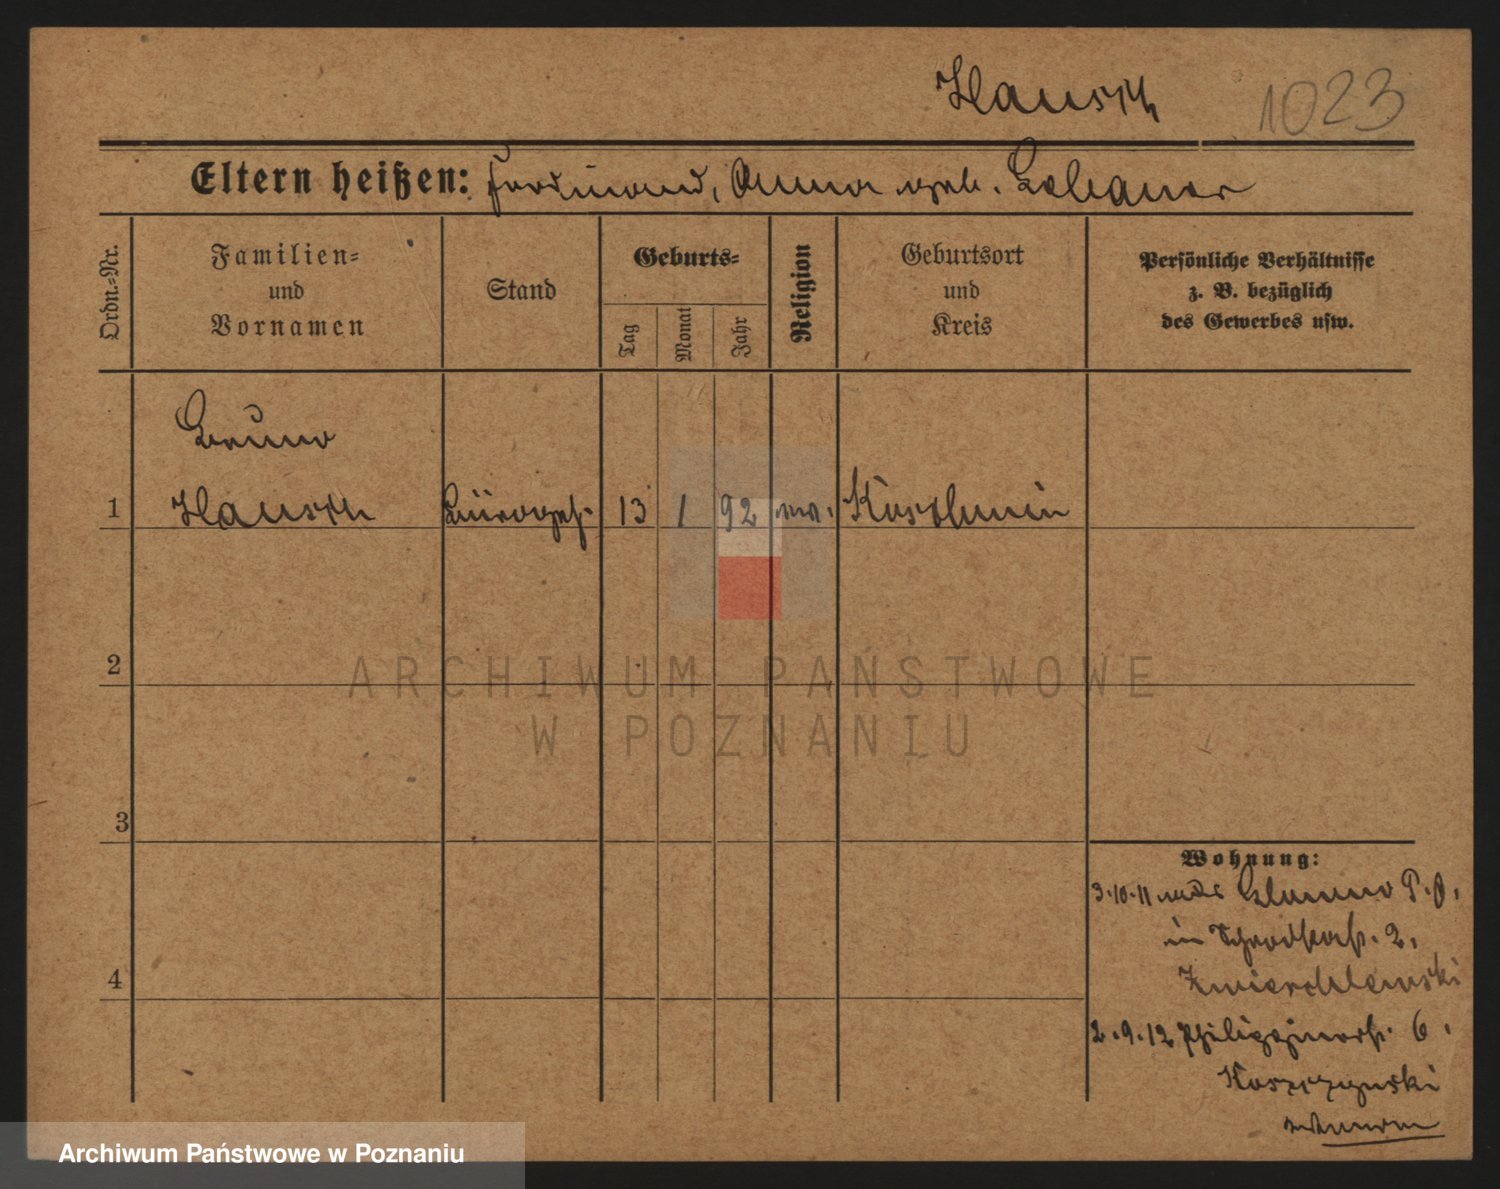 Hausch 1023
Eltern heißen: Ferdinand, Anna geb.
Ordn.-Nr.
Familien-
und
Vornamen
Stand
Geburts-
Tag
Monat
Jahr
Religion
Geburtsort
und
Kreis
Persönliche Verhältnisse
z. B. bezüglich
des Gewerbes usw.
Bruno
1 Hausch Bürogeh. 13 1 92 Koschmin
2
3
4
ARCHIWUM PAŃSTWOWE
W POZNANIU
Wohnung:
3.10.11
in 2.
2.9.12 6.
Koszczynski
Archiwum Państwowe w Poznaniu